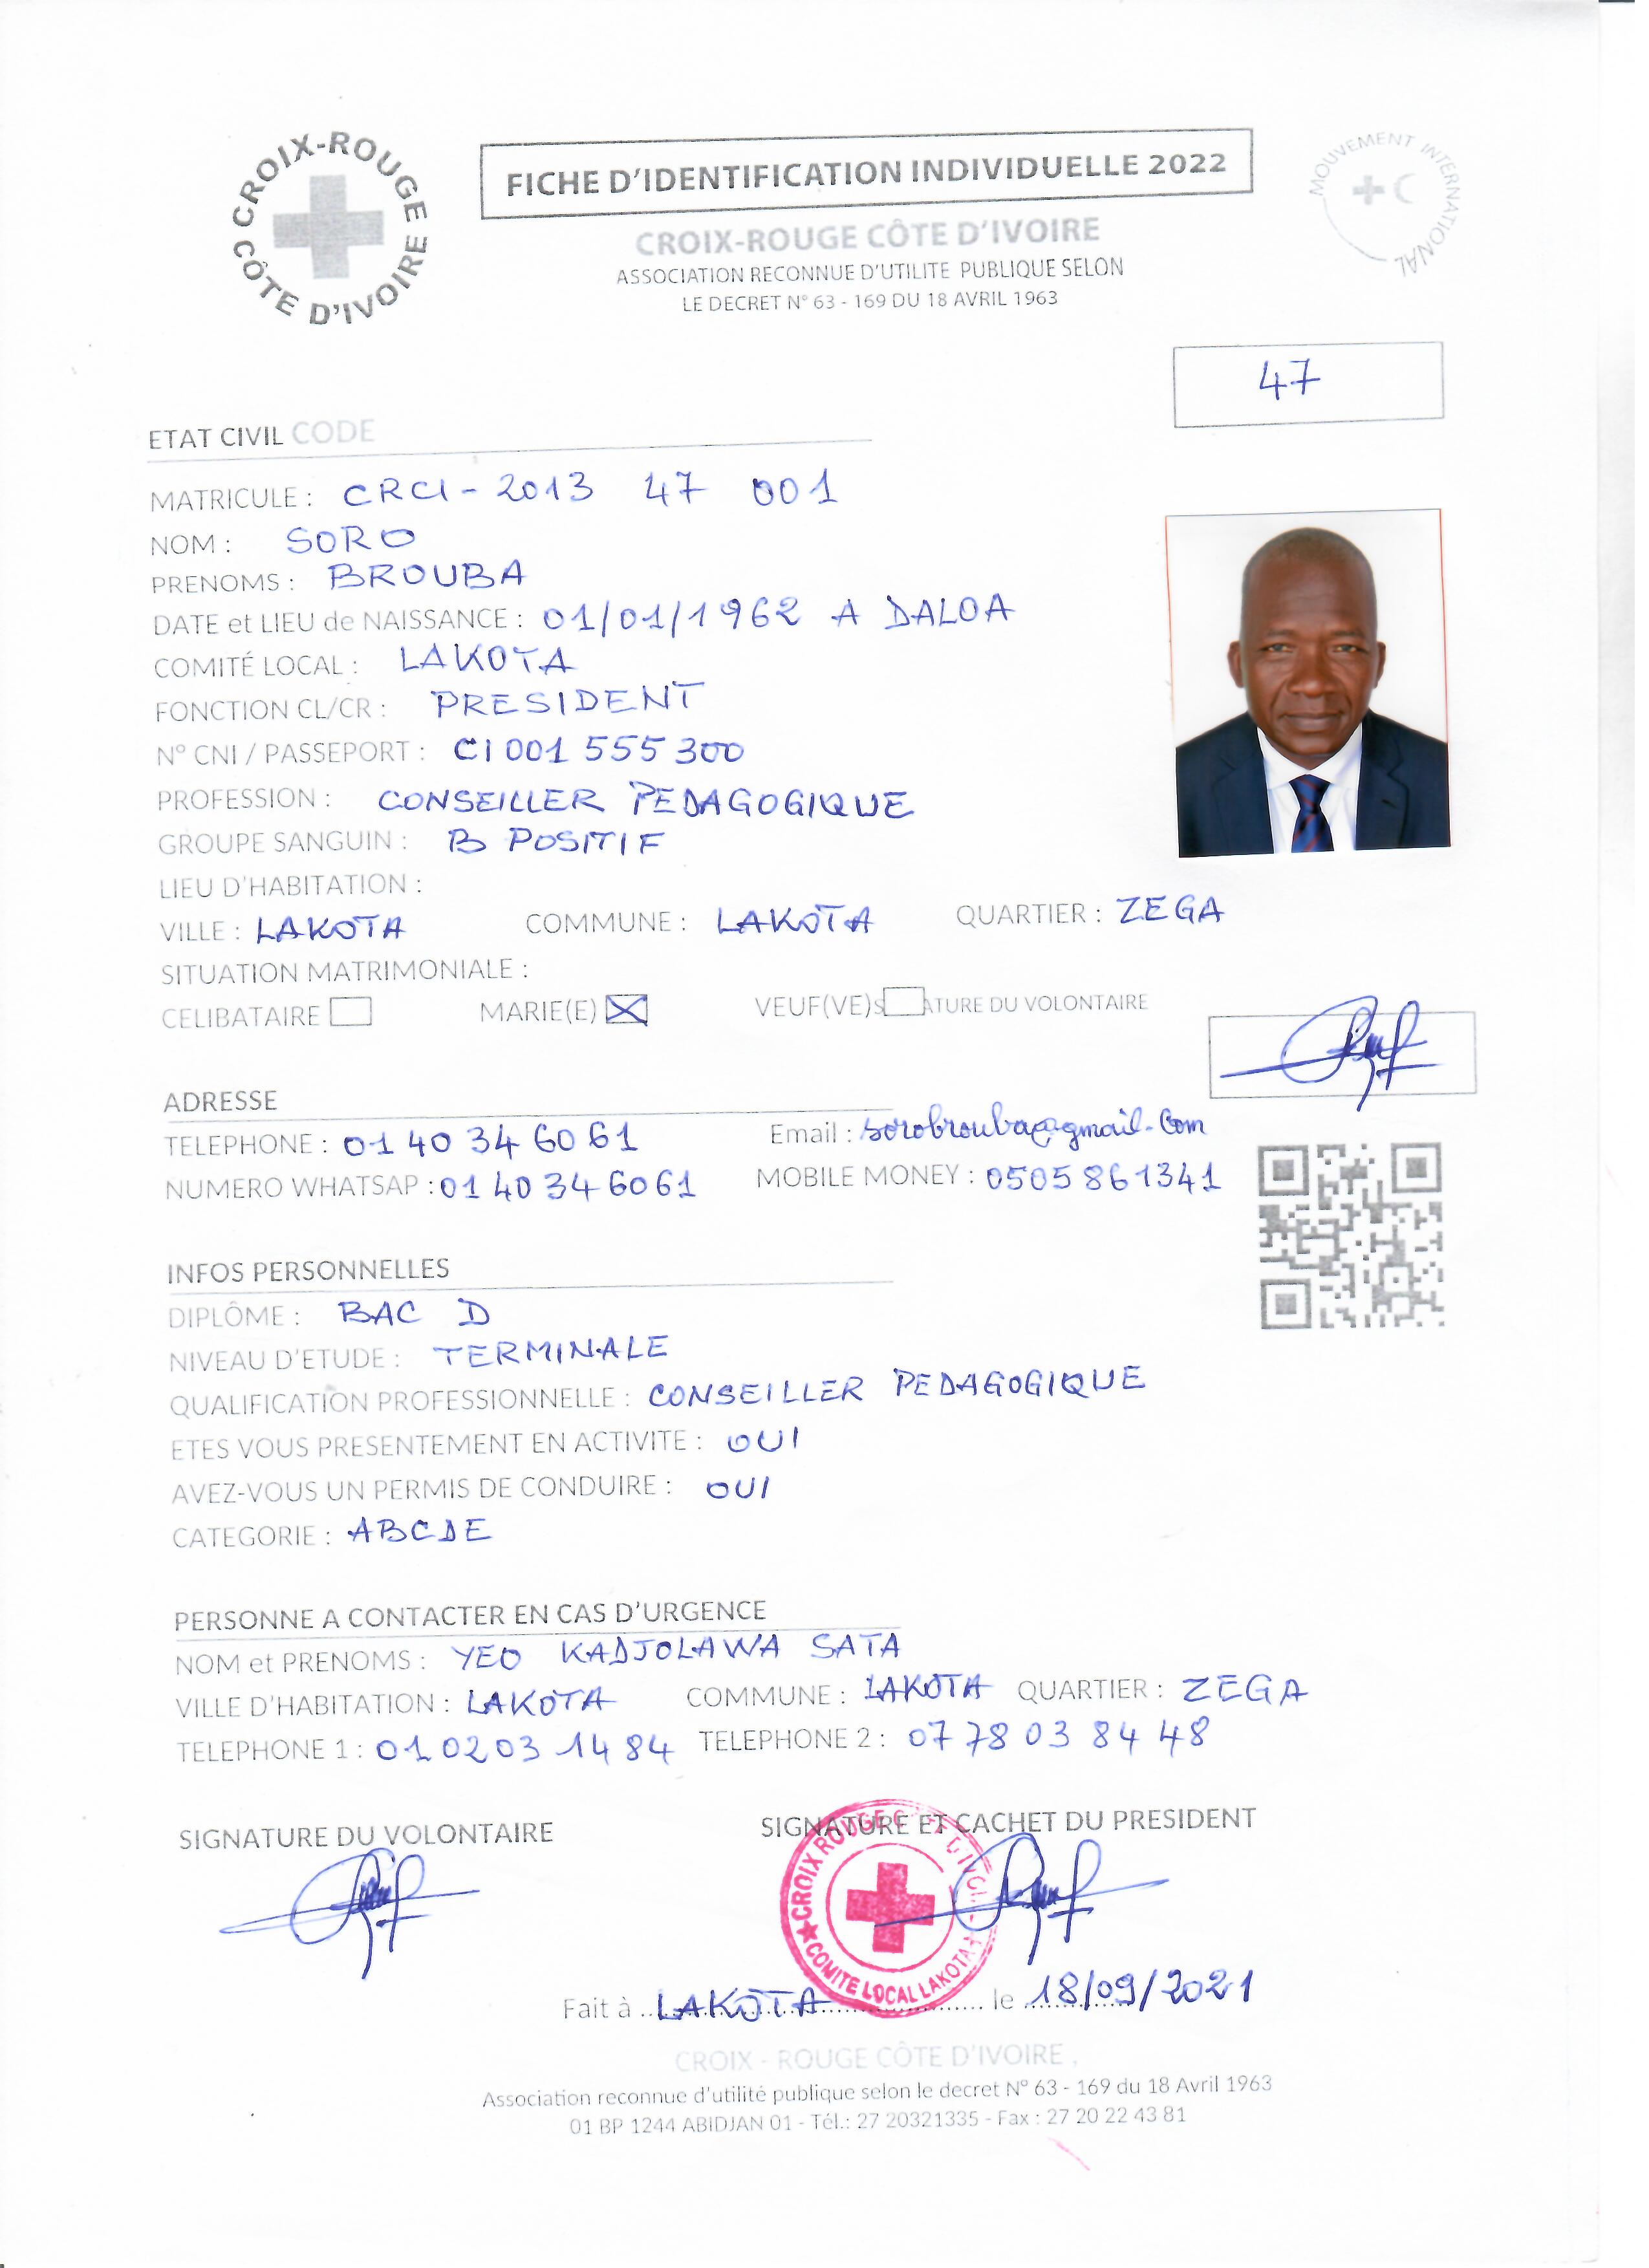 CROIX-ROUGE CÔTE D'IVOIRE
FICHE D'IDENTIFICATION INDIVIDUELLE 2022
MOUVEMENT INTERNATIONAL
CROIX-ROUGE CÔTE D'IVOIRE
ASSOCIATION RECONNUE D'UTILITE PUBLIQUE SELON
LE DECRET N° 63 - 169 DU 18 AVRIL 1963
47
ETAT CIVIL CODE
MATRICULE : CRCI - 2013 47 001
NOM : SORO
PRENOMS : BROUBA
DATE et LIEU de NAISSANCE : 01/01/1962 A DALOA
COMITÉ LOCAL : LAKOTA
FONCTION CL/CR : PRESIDENT
N° CNI / PASSEPORT : CI 001 555 300
PROFESSION : CONSEILLER PEDAGOGIQUE
GROUPE SANGUIN : B POSITIF
LIEU D'HABITATION :
VILLE : LAKOTA COMMUNE : LAKOTA QUARTIER : ZEGA
SITUATION MATRIMONIALE :
CELIBATAIRE MARIE(E) VEUF(VE) S ATURE DU VOLONTAIRE
ADRESSE
TELEPHONE : 01 40 34 60 61 Email : sorobrouba@gmail.com
NUMERO WHATSAP : 01 40 34 60 61 MOBILE MONEY : 0505 861341
INFOS PERSONNELLES
DIPLÔME : BAC D
NIVEAU D'ETUDE : TERMINALE
QUALIFICATION PROFESSIONNELLE : CONSEILLER PEDAGOGIQUE
ETES VOUS PRESENTEMENT EN ACTIVITE : OUI
AVEZ-VOUS UN PERMIS DE CONDUIRE : OUI
CATEGORIE : ABCDE
PERSONNE A CONTACTER EN CAS D'URGENCE
NOM et PRENOMS : YEO KADJOLAWA SATA
VILLE D'HABITATION : LAKOTA COMMUNE : LAKOTA QUARTIER : ZEGA
TELEPHONE 1 : 01 02 03 14 84 TELEPHONE 2 : 07 78 03 84 48
SIGNATURE DU VOLONTAIRE SIGNATURE ET CACHET DU PRESIDENT
CROIX ROUGE
COMITE LOCAL LAKOTA
Fait à LAKOTA le 18/09/2021
CROIX - ROUGE CÔTE D'IVOIRE ,
Association reconnue d'utilité publique selon le decret N° 63 - 169 du 18 Avril 1963
01 BP 1244 ABIDJAN 01 - Tél.: 27 20321335 - Fax : 27 20 22 43 81